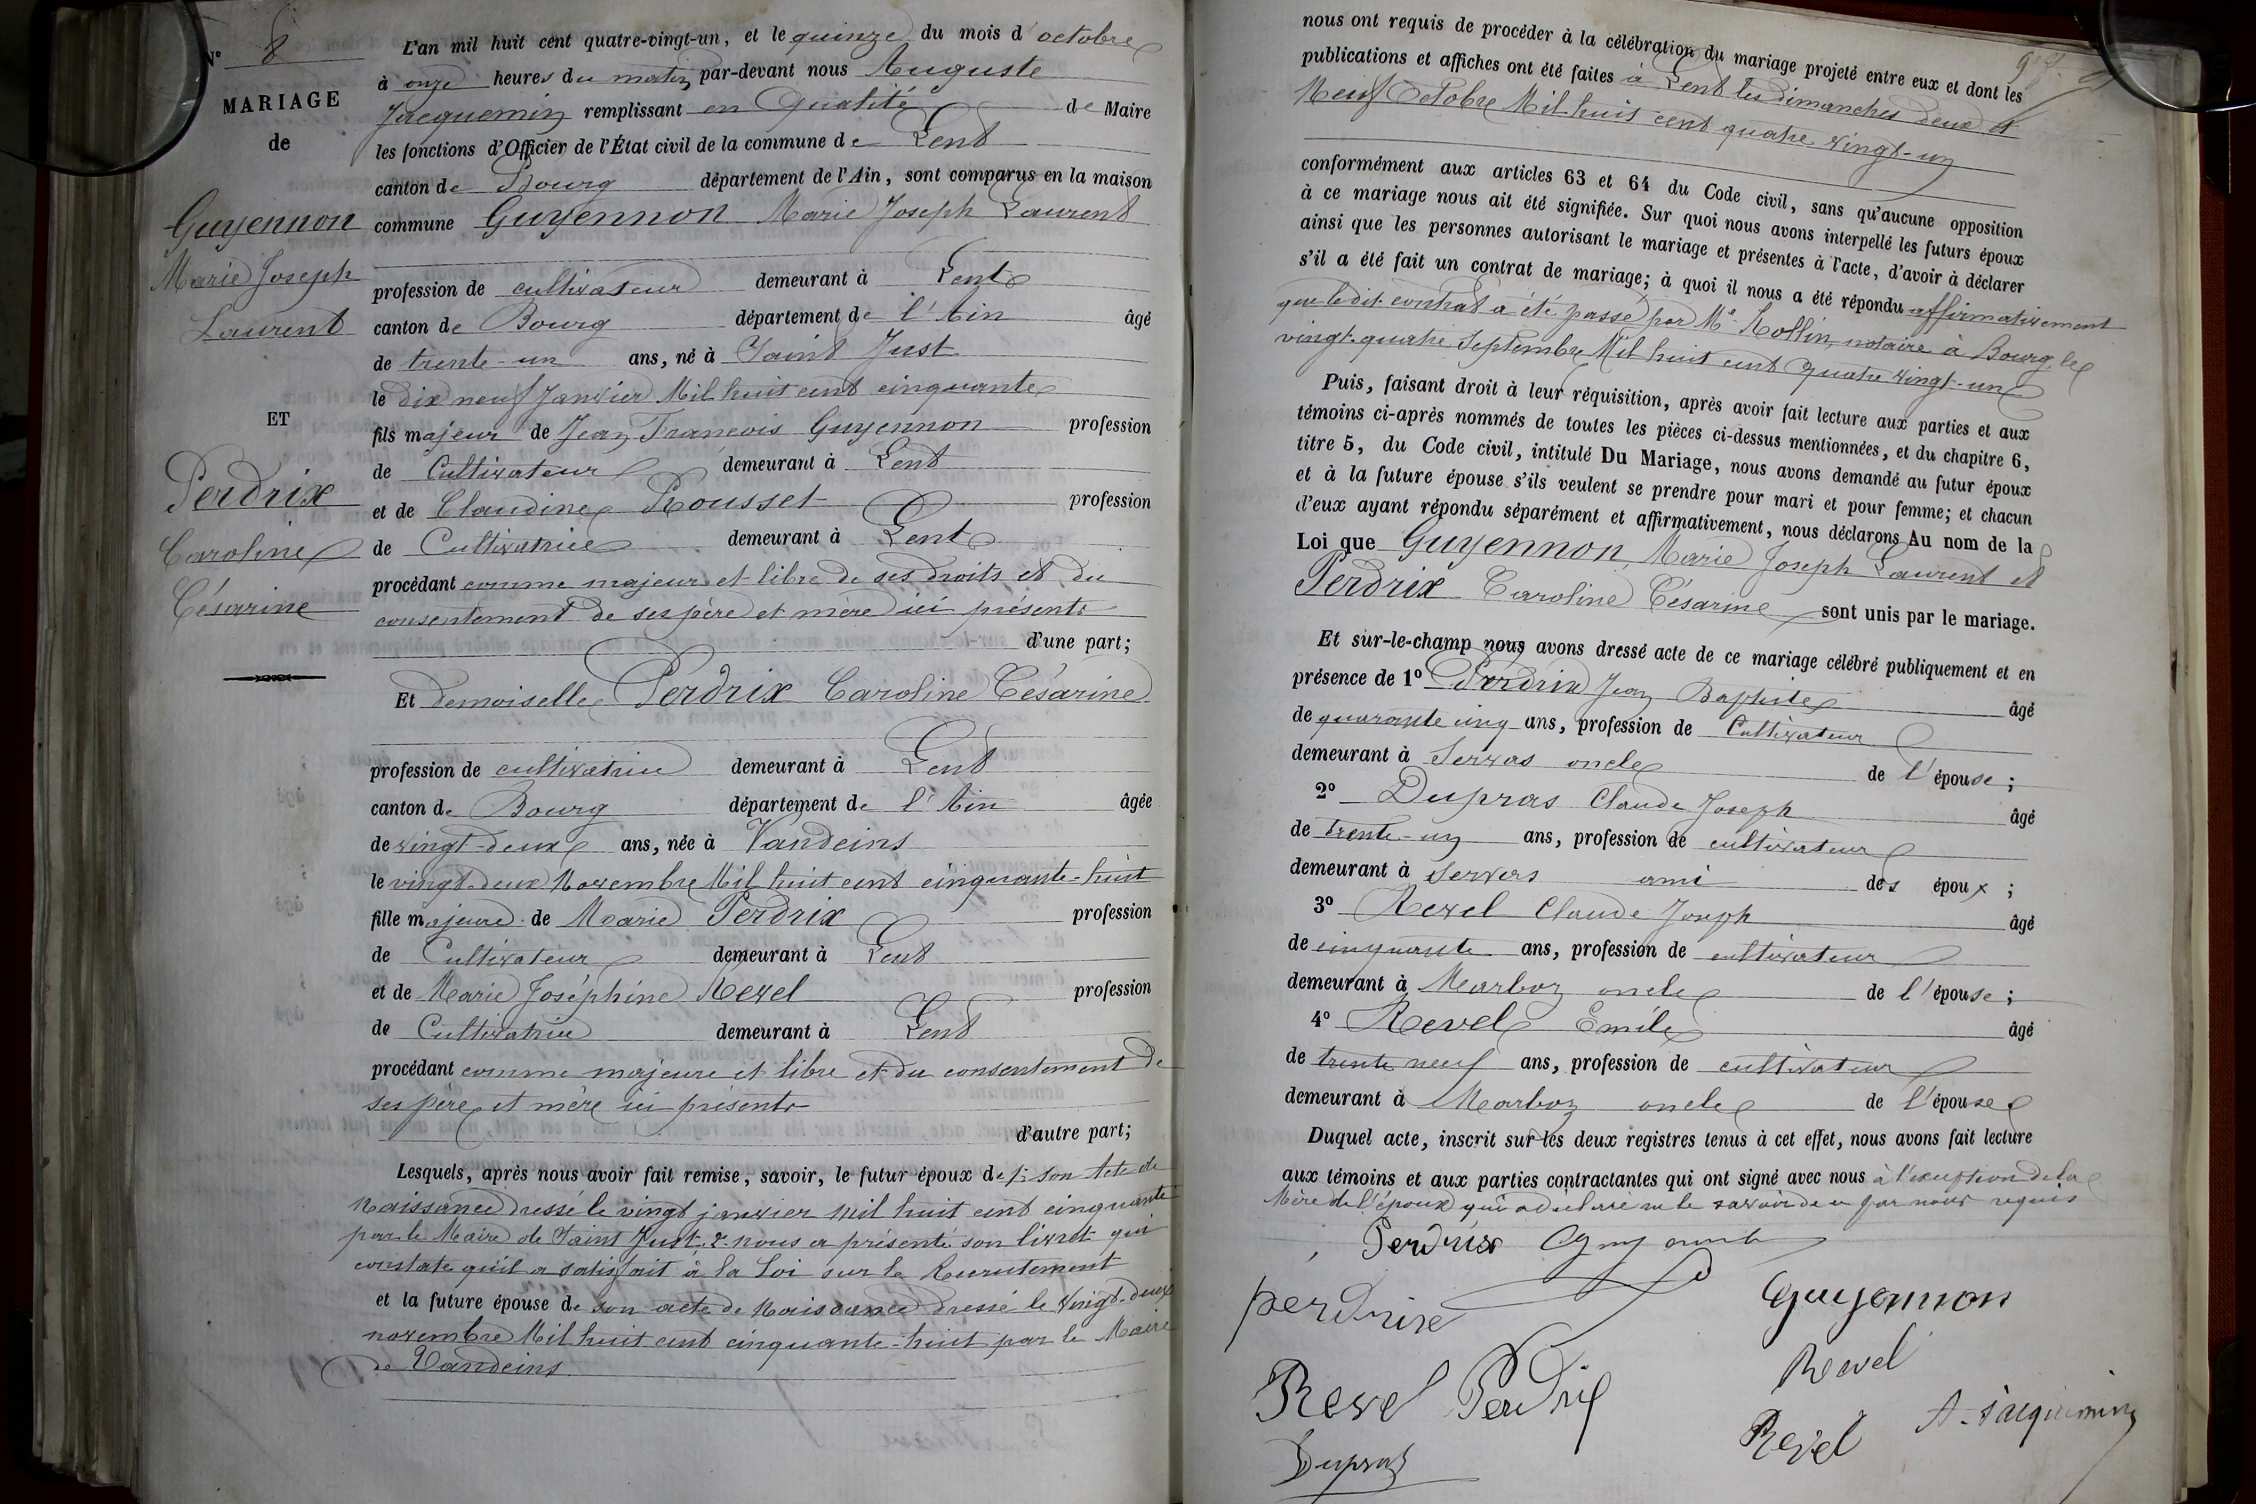 N° 8
MARIAGE
de
Guyennon
Marie Joseph
Laurent
ET
Perdrix
Caroline
Césarine
L'an mil huit cent quatre-vingt-un, et le quinze du mois d'octobre
à onze heures du matin par-devant nous Auguste
Jacquemin remplissant en qualité de Maire
les fonctions d'Officier de l'État civil de la commune de Lent
canton de Bourg département de l'Ain, sont comparus en la maison
commune Guyennon Marie Joseph Laurent
profession de cultivateur demeurant à Lent
canton de Bourg département de l'Ain âgé
de trente-un ans, né à Saint Just
le dix neuf Janvier Mil huit cent cinquante
fils majeur de Jean Francois Guyennon profession
de Cultivateur demeurant à Lent
et de Claudine Rousset profession
de Cultivatrice demeurant à Lent
procédant comme majeur et libre de ses droits et du
consentement de ses père et mère ici présents
d'une part;
Et demoiselle Perdrix Caroline Césarine
profession de cultivatrice demeurant à Lent
canton de Bourg département de l'Ain âgée
de vingt-deux ans, née à Vandeins
le vingt-deux Novembre Mil huit cent cinquante-huit
fille majeure de Marie Perdrix profession
de Cultivateur demeurant à Lent
et de Marie Joséphine Revel profession
de Cultivatrice demeurant à Lent
procédant comme majeure et libre et du consentement de
ses père et mère ici présents
d'autre part;
Lesquels, après nous avoir fait remise, savoir, le futur époux de 1: son Acte de
Naissance dressé le vingt janvier mil huit cent cinquante
par le Maire de Saint Just. 2. nous a présenté son livret qui
constate qu'il a satisfait à la Loi sur le Recrutement
et la future épouse de son acte de Naissance dressé le Vingt-deux
novembre Mil huit cent cinquante-huit par le Maire
de Vandeins
nous ont requis de procéder à la célébration du mariage projeté entre eux et dont les
publications et affiches ont été faites à Lent les dimanches deux et
Neuf Octobre Mil huit cent quatre vingt-un
conformément aux articles 63 et 64 du Code civil, sans qu'aucune opposition
à ce mariage nous ait été signifiée. Sur quoi nous avons interpellé les futurs époux
ainsi que les personnes autorisant le mariage et présentes à l'acte, d'avoir à déclarer
s'il a été fait un contrat de mariage; à quoi il nous a été répondu affirmativement
que le dit contrat a été passé par Me Rollin, notaire à Bourg le
vingt-quatre Septembre Mil huit cent quatre vingt-un
Puis, faisant droit à leur réquisition, après avoir fait lecture aux parties et aux
témoins ci-après nommés de toutes les pièces ci-dessus mentionnées, et du chapitre 6,
titre 5, du Code civil, intitulé Du Mariage, nous avons demandé au futur époux
et à la future épouse s'ils veulent se prendre pour mari et pour femme; et chacun
d'eux ayant répondu séparément et affirmativement, nous déclarons Au nom de la
Loi que Guyennon, Marie Joseph Laurent et
Perdrix Caroline Césarine sont unis par le mariage.
Et sur-le-champ nous avons dressé acte de ce mariage célébré publiquement et en
présence de 1° Perdrix Jean Baptiste âgé
de quarante cinq ans, profession de Cultivateur
demeurant à Servas oncle de l'épouse;
2° Dupras Claude Joseph âgé
de trente-un ans, profession de cultivateur
demeurant à Servas ami des époux;
3° Revel Claude Joseph âgé
de cinquante ans, profession de cultivateur
demeurant à Marboz oncle de l'épouse;
4° Revel Emile âgé
de trente neuf ans, profession de cultivateur
demeurant à Marboz oncle de l'épouse
Duquel acte, inscrit sur les deux registres tenus à cet effet, nous avons fait lecture
aux témoins et aux parties contractantes qui ont signé avec nous à l'exception de la
Mère de l'époux qui a déclaré ne le savoir de ce par nous requis
Perdrix Guyennon
perdrix Guyennon
Revel
Revel Perdrix
Revel A. Jacquemin
Dupras